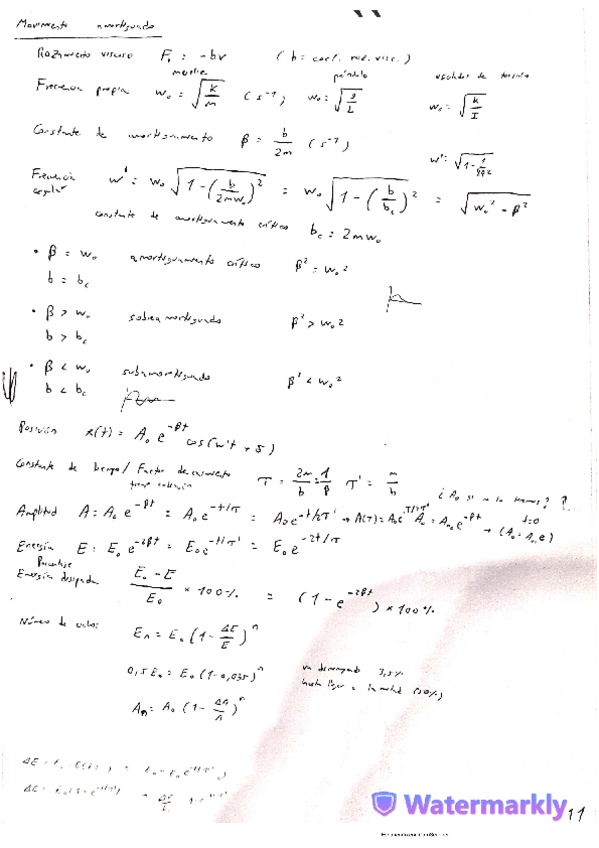 Movimiento amortiguado
Rozamiento viscoso F_r = -bv (b = coef. roz. visc.)
muelle péndulo oscilador de torsión
Frecuencia propia w₀ = √(k/m) (s⁻¹) w₀ = √(g/L) w₀ = √(k/I)
Constante de amortiguamiento β = b/2m (s⁻¹)
w' = √(1 - 1/4Q²)
Frecuencia angular w' = w₀ √(1 - (b/2mw₀)²) = w₀ √(1 - (b/b_c)²) = √(w₀² - β²)
constante de amortiguamiento crítico b_c = 2mw₀
• β = w₀ amortiguamiento crítico β² = w₀²
b = b_c
• β > w₀ sobreamortiguado β² > w₀²
b > b_c
• β < w₀ subamortiguado β² < w₀²
b < b_c
Posición x(t) = A₀ e^(-βt) cos(w't + δ)
Constante de tiempo / Factor de crecimiento τ = 2m/b = 1/β τ' = m/b
¿A₀ si no la tenemos?
Amplitud A = A₀ e^(-βt) = A₀ e^(-t/τ) = A₀ e^(-t/2τ')
Energía E = E₀ e^(-2βt) = E₀ e^(-t/τ') = E₀ e^(-2t/τ)
Porcentaje
Energía disipada (E₀ - E)/E₀ × 100% = (1 - e^(-2βt)) × 100%
Número de ciclos E_n = E₀ (1 - ΔE/E)ⁿ
0,5E₀ = E₀ (1 - 0,035)ⁿ va disminuyendo 3,5%
hasta llegar a la mitad (50%)
A_n = A₀ (1 - ΔA/A)ⁿ
Watermarkly
11